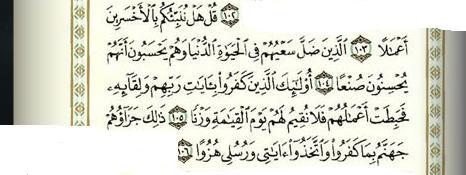 ١٠٢ قُلْ هَلْ نُنَبِّئُكُم بِٱلْأَخْسَرِينَ
أَعْمَٰلًا ١٠٣ ٱلَّذِينَ ضَلَّ سَعْيُهُمْ فِى ٱلْحَيَوٰةِ ٱلدُّنْيَا وَهُمْ يَحْسَبُونَ أَنَّهُمْ
يُحْسِنُونَ صُنْعًا ١٠٤ أُو۟لَٰٓئِكَ ٱلَّذِينَ كَفَرُوا۟ بِـَٔايَٰتِ رَبِّهِمْ وَلِقَآئِهِۦ
فَحَبِطَتْ أَعْمَٰلُهُمْ فَلَا نُقِيمُ لَهُمْ يَوْمَ ٱلْقِيَٰمَةِ وَزْنًا ١٠٥ ذَٰلِكَ جَزَآؤُهُمْ
جَهَنَّمُ بِمَا كَفَرُوا۟ وَٱتَّخَذُوٓا۟ ءَايَٰتِى وَرُسُلِى هُزُوًا ١٠٦